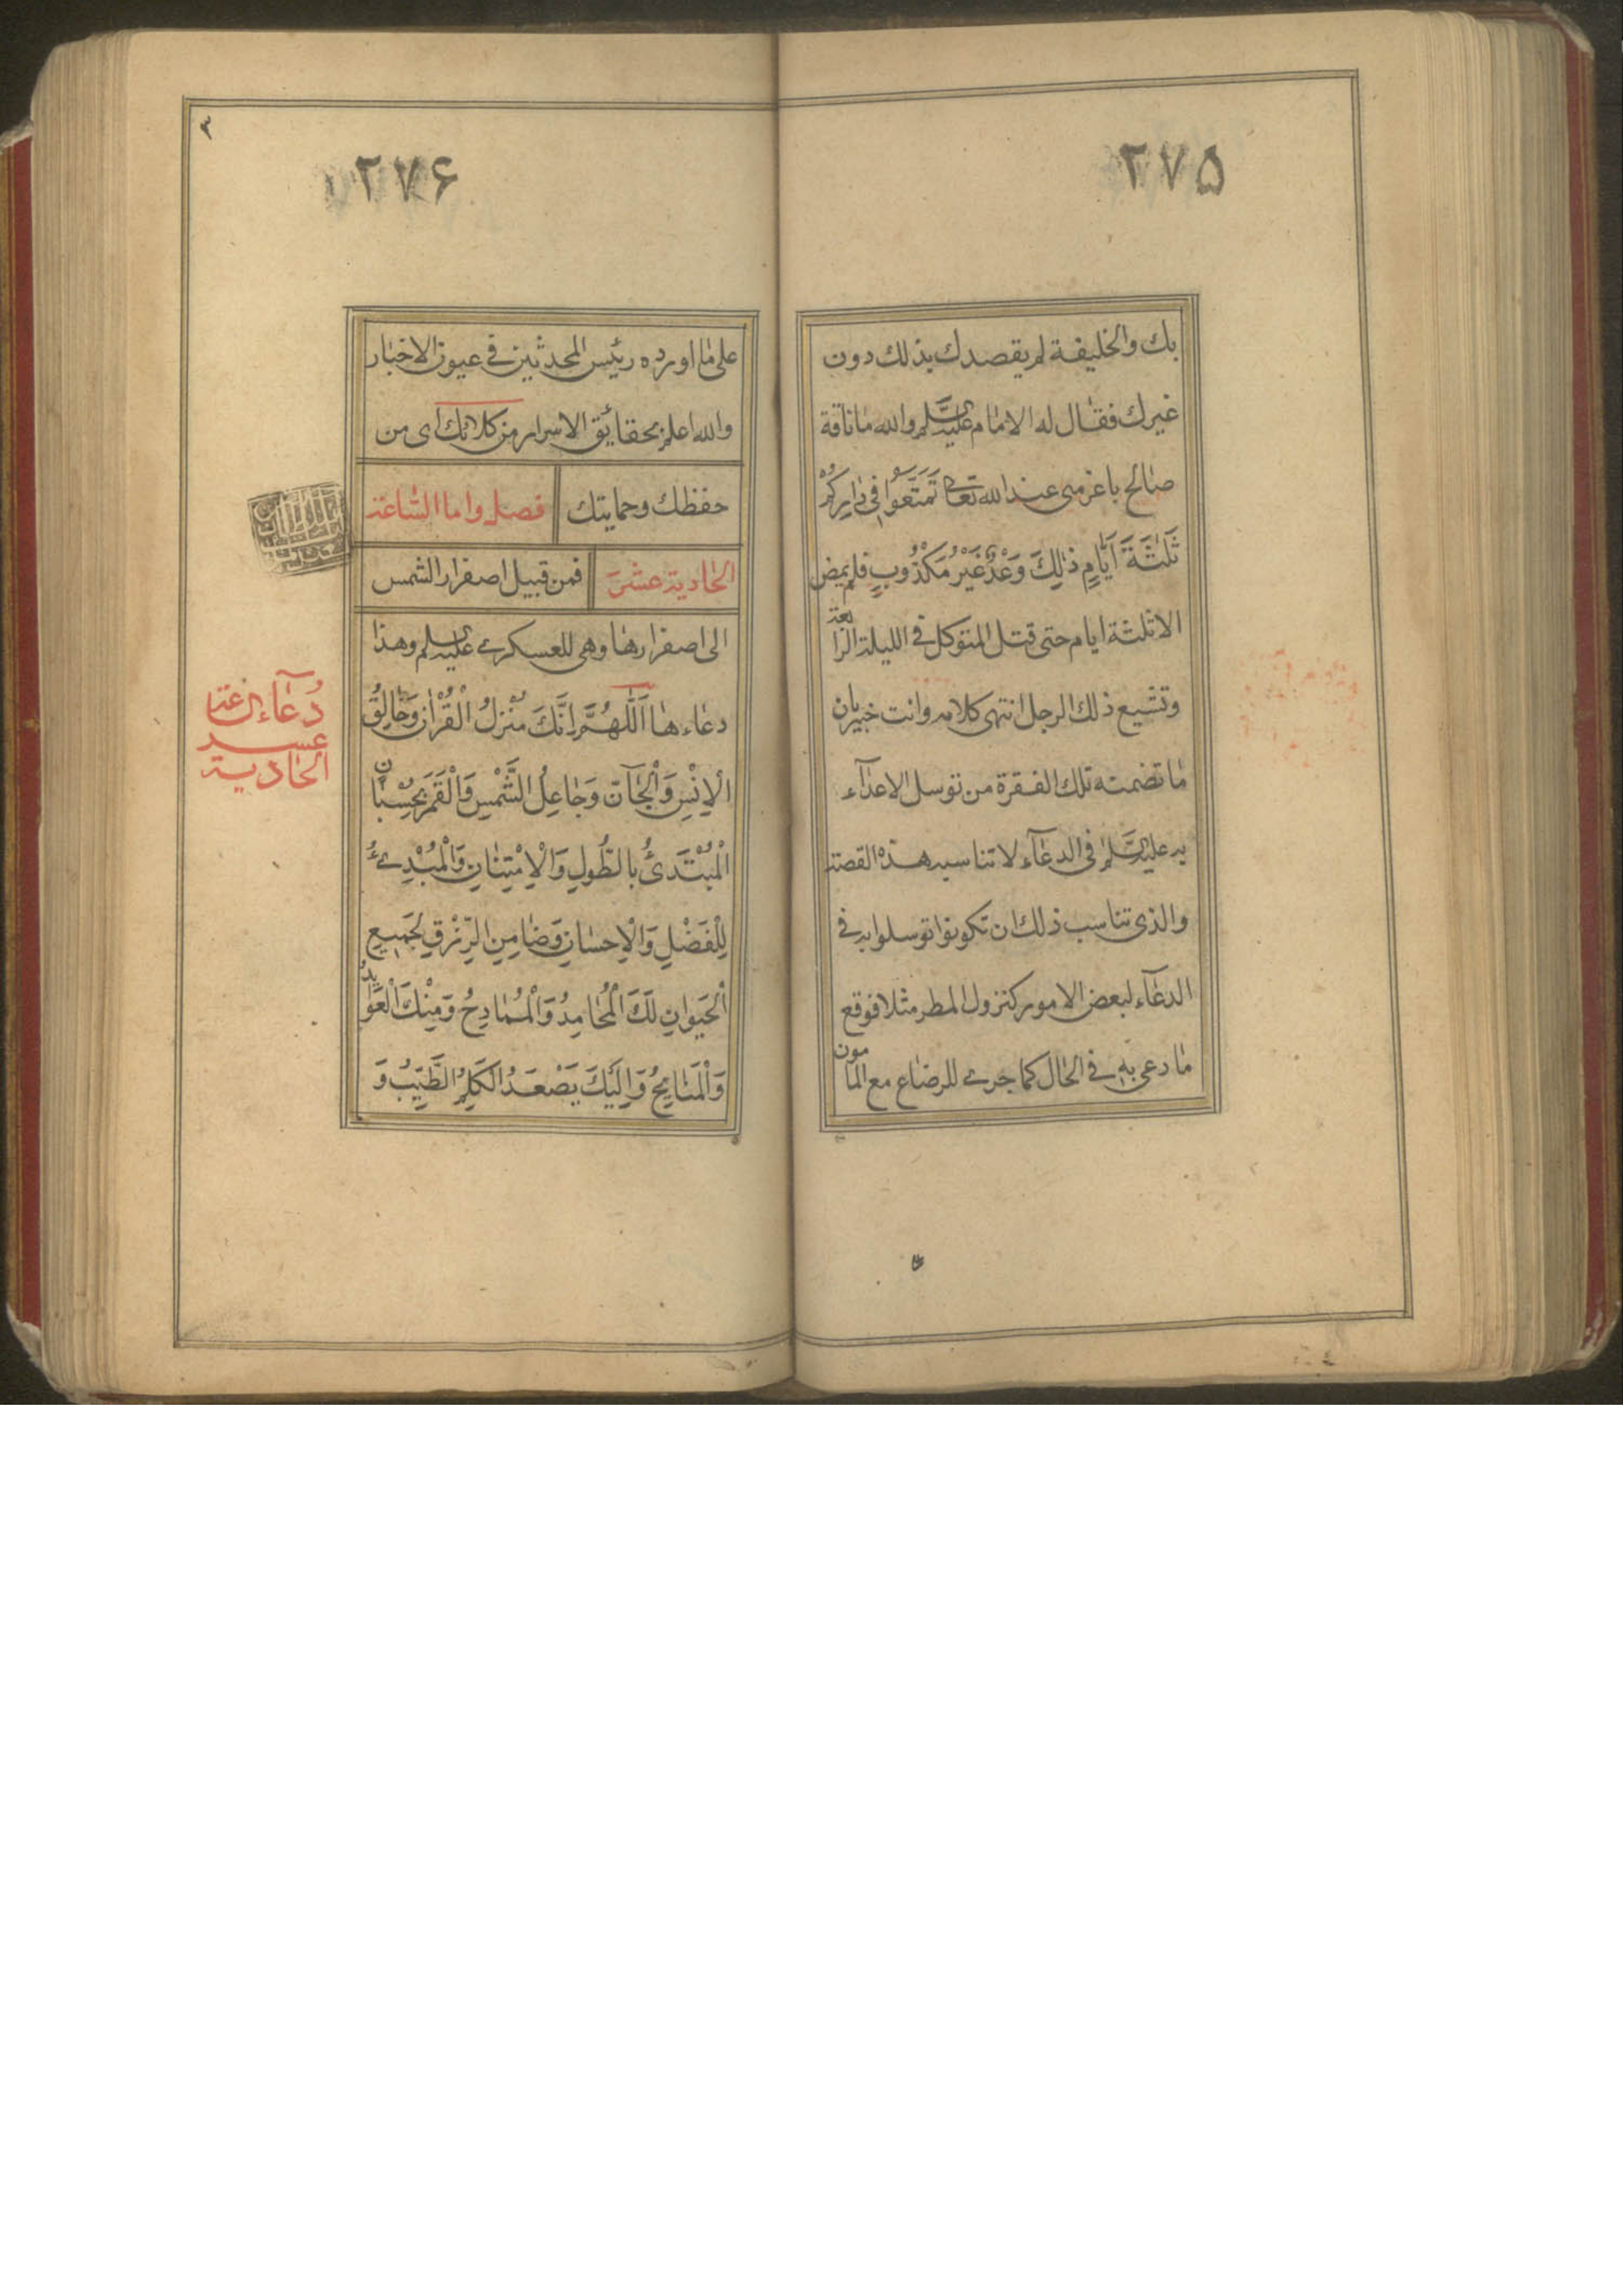 ٢٧٥
بك والخليفة لم يقصدك بذلك دون
غيرك فقال له الامام عليه السلم والله ما ناقة
صالح باعز منى عند الله تعالى تَمَتَّعُوا فِى دَارِكُمْ
ثَلٰثَةَ اَيَّامٍ ذٰلِكَ وَعْدٌ غَيْرُ مَكْذُوبٍ فلم يمض
الا ثلثة ايام حتى قتل المتوكل فى الليلة الرابعة
وتشيع ذلك الرجل انتهى كلامه وانت خبير بان
ما تضمنه تلك الفقرة من توسل الاعدآء
به عليه السلم فى الدعآء لا تناسبه هذه القصة
والذى تناسب ذلك ان تكونوا توسلوا به فى
الدعآء لبعض الامور كنزول المطر مثلا فوقع
ما دعى به فى الحال كما جرى للرضا ع مع المامون
٣
٢٧۶
على ما اورده رئيس المحدثين فى عيون الاخبار
والله اعلم بحقائق الاسرار من كلائك اى من
حفظك وحمايتك فصل واما الساعة
الحادية عشر فمن قبيل اصفرار الشمس
الى اصفرارها وهى للعسكرى عليه السلم وهذا
دعاءها اَللّٰهُمَّ اِنَّكَ مُنْزِلُ الْقُرْاٰنِ وَخَالِقُ
الْاِنْسِ وَالْجَآنِّ وَجَاعِلُ الشَّمْسِ وَالْقَمَرِ بِحُسْبَانٍ
الْمُبْتَدِئُ بِالطَّوْلِ وَالْاِمْتِنَانِ وَالْمُبْدِئُ
لِلْفَضْلِ وَالْاِحْسَانِ وَضَامِنُ الرِّزْقِ لِجَمِيعِ
الْحَيَوانِ لَكَ الْمَحَامِدُ وَالْمَمَادِحُ وَمِنْكَ الْعَوَايِدُ
وَالْمَنَايِحُ وَاِلَيْكَ يَصْعَدُ الْكَلِمُ الطَّيِّبُ وَ
دعاء
عشر
الحادية